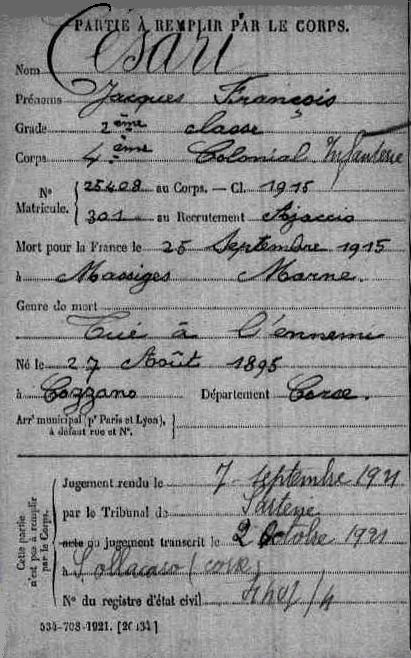 PARTIE À REMPLIR PAR LE CORPS.
Nom Cesari
Prénoms Jacques François
Grade 2ème classe
Corps 4ème Colonial Infanterie
Nº Matricule. { 25408 au Corps. — Cl. 1915
301 au Recrutement Ajaccio
Mort pour la France le 25 Septembre 1915
à Massiges Marne.
Genre de mort
Tué à l'ennemi
Né le 27 Août 1895
à Cozzano Département Corse.
Arr' municipal (p' Paris et Lyon), à défaut rue et Nº. }
Cette partie n'est pas à remplir par le Corps.
Jugement rendu le 7 septembre 1921
par le Tribunal de Sartene
acte ou jugement transcrit le 2 Octobre 1921
à Sollacaro (corse)
Nº du registre d'état civil
534-708-1921. [26434]